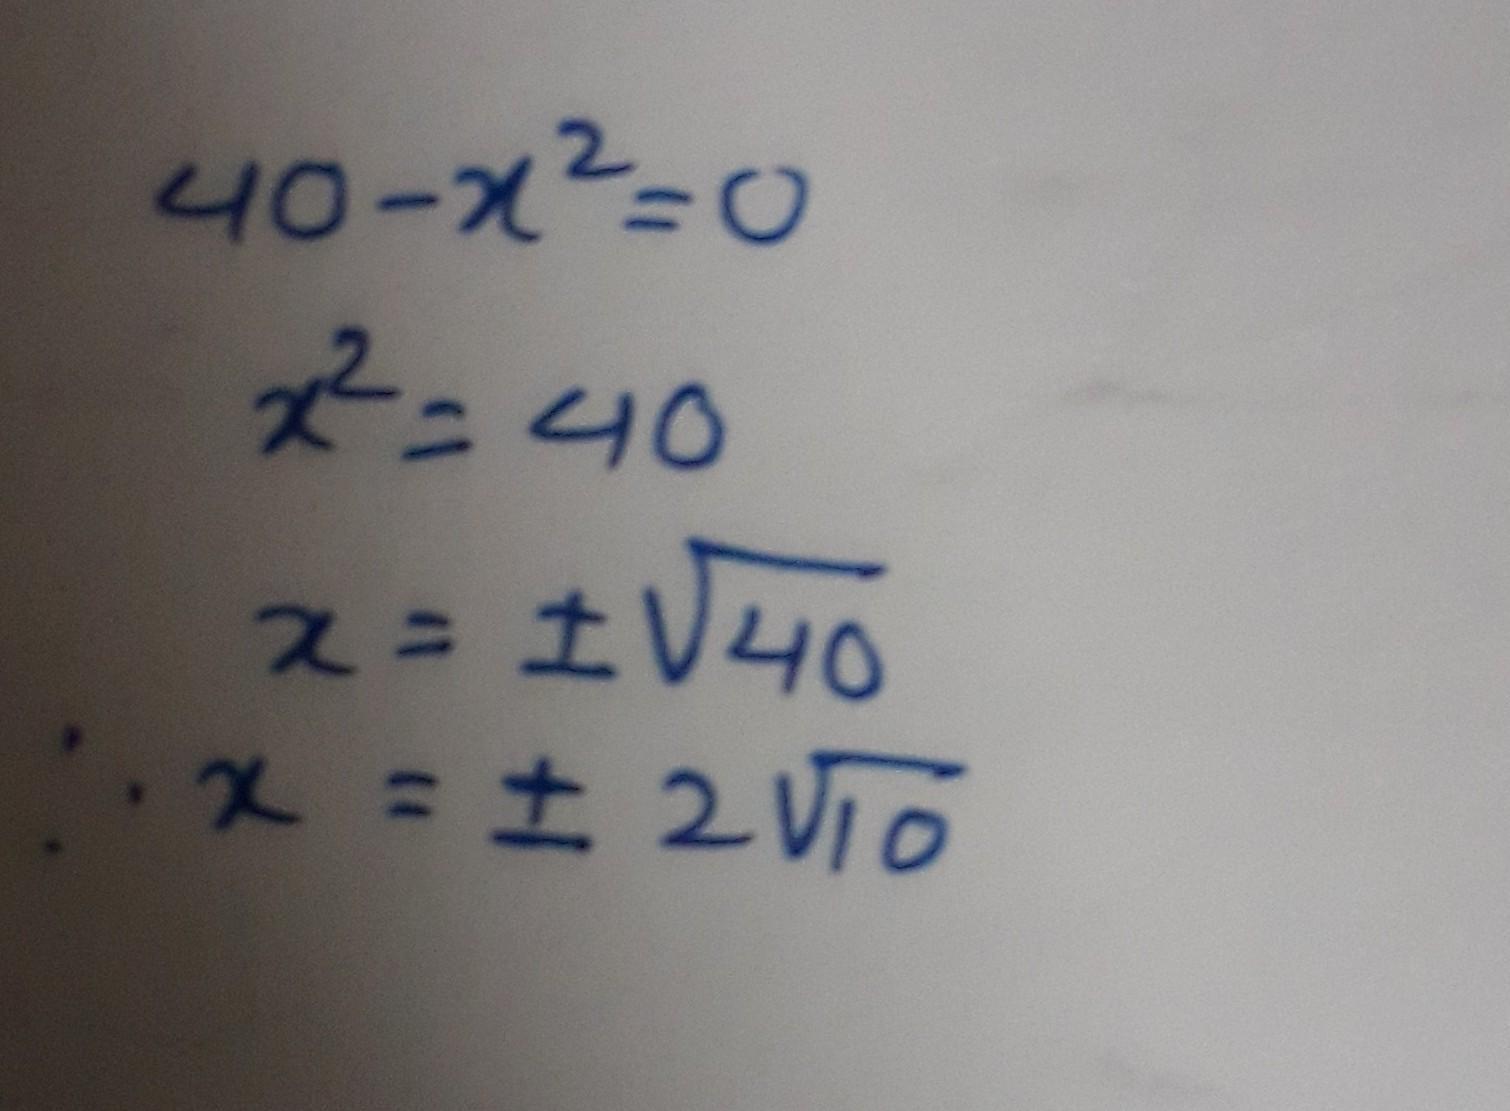 40-x²=0
x²= 40
x = ±√40
∴ x = ± 2√10